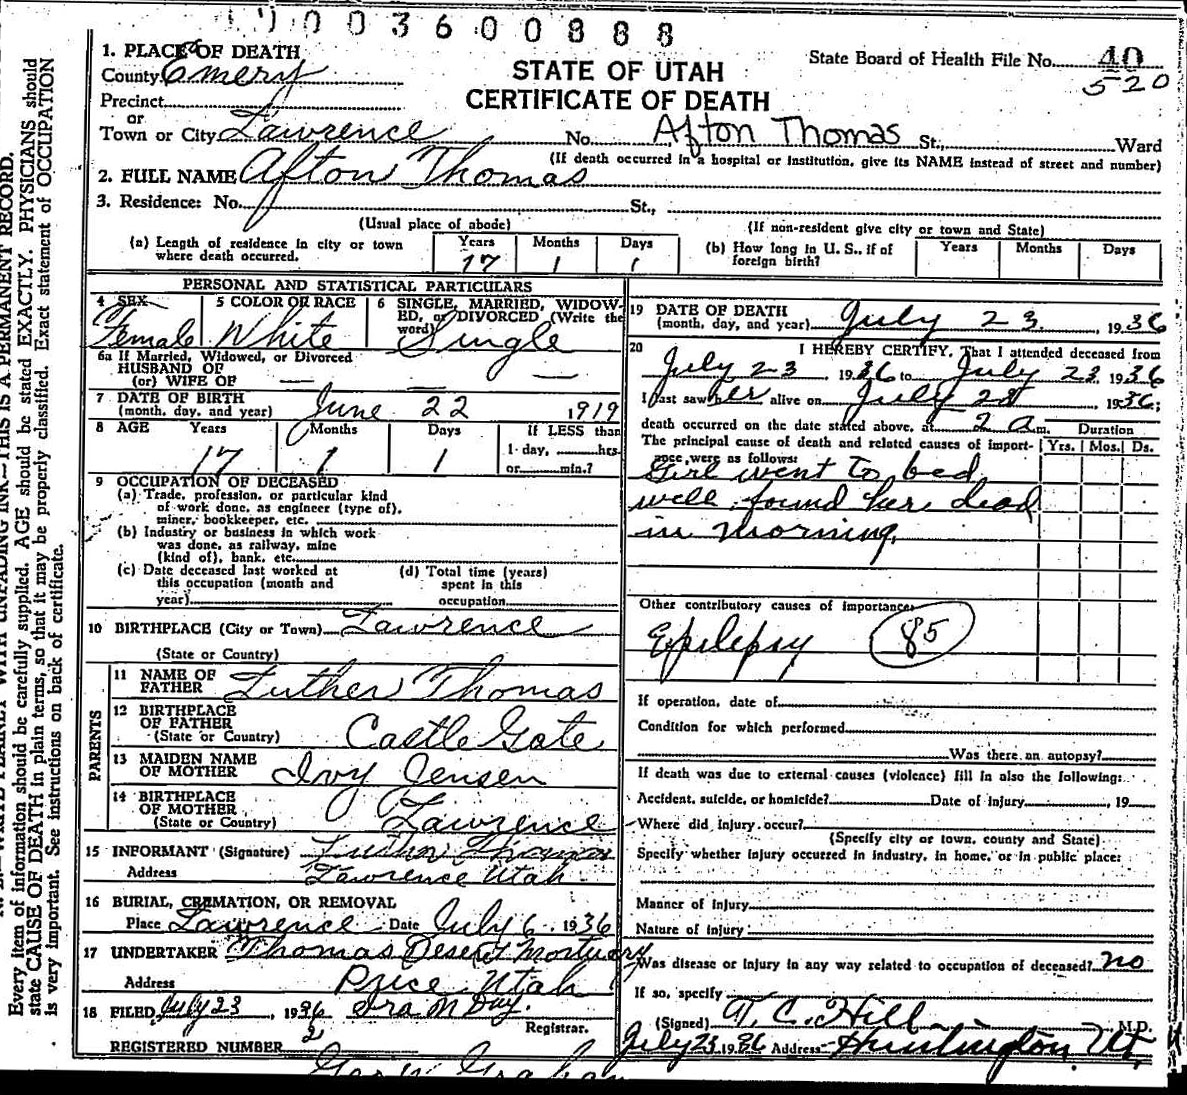 0003600888
1. PLACE OF DEATH
County Emery
STATE OF UTAH
State Board of Health File No. 40
520
Precinct
CERTIFICATE OF DEATH
or
Town or City Lawrence No. Afton Thomas St., Ward
(If death occurred in a hospital or institution, give its NAME instead of street and number)
2. FULL NAME Afton Thomas
3. Residence: No. St.,
(Usual place of abode) (If non-resident give city or town and State)
(a) Length of residence in city or town where death occurred. Years 17 Months 1 Days 1
(b) How long in U. S., if of foreign birth? Years Months Days
PERSONAL AND STATISTICAL PARTICULARS
4 SEX Female
5 COLOR OR RACE White
6 SINGLE, MARRIED, WIDOWED, or DIVORCED (Write the word) Single
6a If Married, Widowed, or Divorced
HUSBAND OF
(or) WIFE OF — — —
7 DATE OF BIRTH
(month, day, and year) June 22 1919
8 AGE Years 17 Months 1 Days 1
If LESS than
1 day, hrs.
or min.?
9 OCCUPATION OF DECEASED
(a) Trade, profession, or particular kind
of work done, as engineer (type of),
miner, bookkeeper, etc.
(b) Industry or business in which work
was done, as railway, mine
(kind of), bank, etc.
(c) Date deceased last worked at
this occupation (month and
year)
(d) Total time (years)
spent in this
occupation
10 BIRTHPLACE (City or Town) Lawrence
(State or Country)
PARENTS
11 NAME OF
FATHER Luther Thomas
12 BIRTHPLACE
OF FATHER
(State or Country) Castle Gate
13 MAIDEN NAME
OF MOTHER Ivy Jensen
14 BIRTHPLACE
OF MOTHER
(State or Country) Lawrence
15 INFORMANT (Signature) Luther Thomas
Address Lawrence Utah
16 BURIAL, CREMATION, OR REMOVAL
Place Lawrence Date July 6 1936
17 UNDERTAKER Thomas Desert Mortuary
Address Price Utah
18 FILED July 23, 1936 Ira M Day.
Registrar.
REGISTERED NUMBER 2
19 DATE OF DEATH
(month, day, and year) July 23. 1936
20 I HEREBY CERTIFY, That I attended deceased from
July 23, 1936 to July 23 1936
I last saw her alive on July 1936;
death occurred on the date stated above, at 2 a m. Duration
The principal cause of death and related causes of importance were as follows: Yrs. Mos. Ds.
Girl went to bed
well found her dead
in morning.
Other contributory causes of importance:
Epilepsy 85
If operation, date of
Condition for which performed
Was there an autopsy?
If death was due to external causes (violence) fill in also the following:
Accident, suicide, or homicide? Date of injury , 19
Where did injury occur?
(Specify city or town, county and State)
Specify whether injury occurred in industry, in home, or in public place:
Manner of Injury
Nature of injury
Was disease or injury in any way related to occupation of deceased? no
If so, specify
(Signed) T. C. Hill M.D.
July 23, 1936 Address Huntington, Ut.
WRITE PLAINLY WITH UNFADING INK—THIS IS A PERMANENT RECORD.
Every item of information should be carefully supplied. AGE should be stated EXACTLY. PHYSICIANS should
state CAUSE OF DEATH in plain terms, so that it may be properly classified. Exact statement of OCCUPATION
is very important. See instructions on back of certificate.